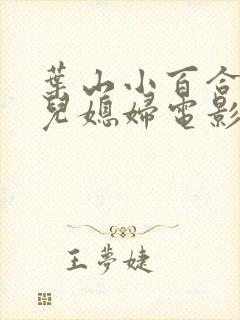 葉山小百合
兒媳婦電影
王夢婕